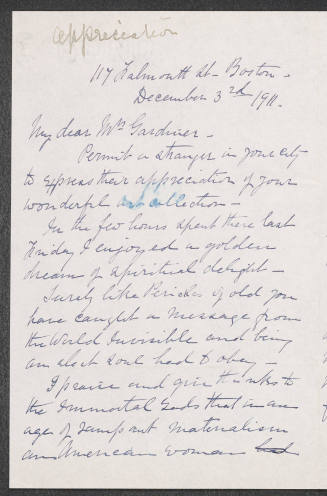 appreciation
117 Falmouth St - Boston -
December 3rd 1911.
My dear Mrs Gardiner -
Permit a stranger in your city
to express their appreciation of your
wonderful art collection -
In the few hours spent there last
Friday I enjoyed a golden
dream of spiritual delight -
Surely like Pericles of old you
have caught a message from
the World Invisible and being
an elect soul had to obey -
I praise and give thanks to
the Immortal Gods that in an
age of rampant materialism
an American woman had